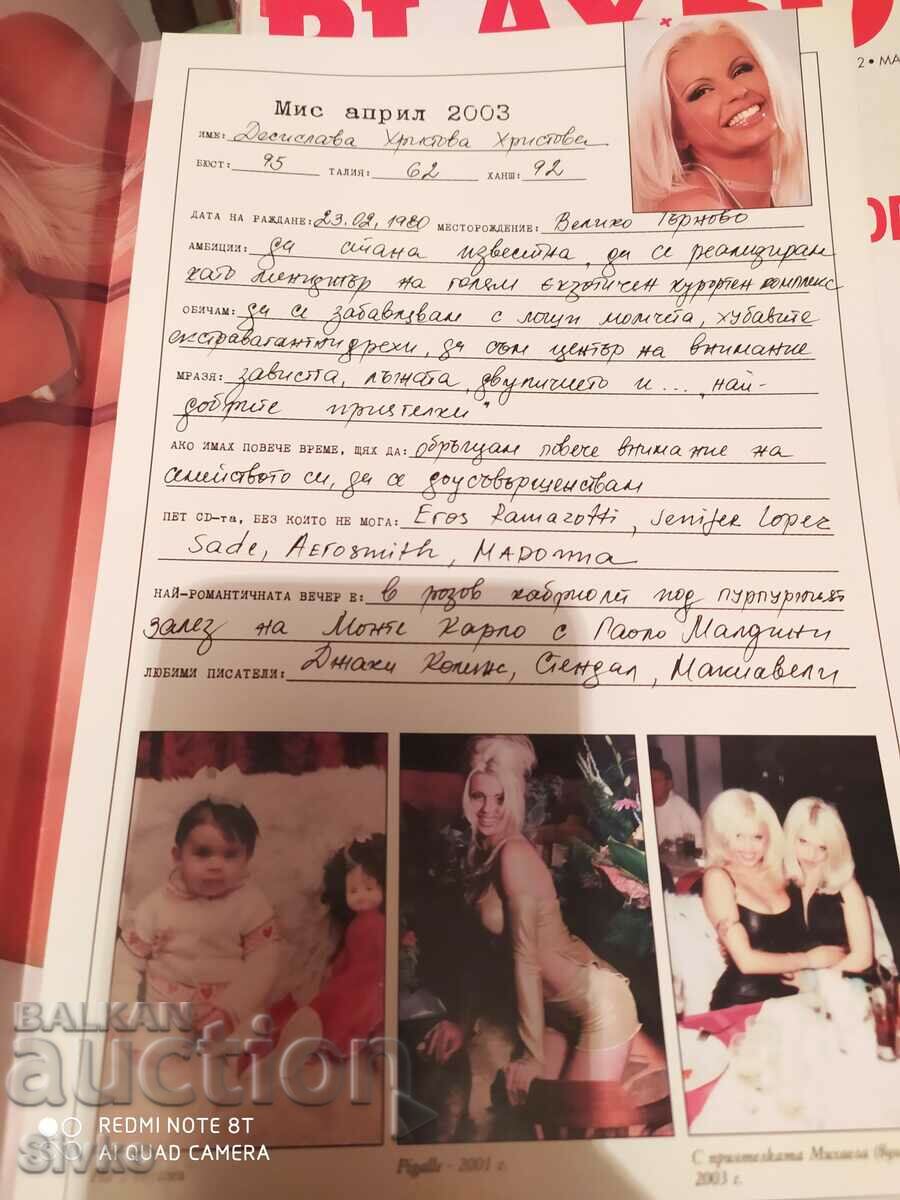 2 • МА
Мис април 2003
ИМЕ: Десислава Христова Христова
БЮСТ: 95 ТАЛИЯ: 62 ХАНШ: 92
ДАТА НА РАЖДАНЕ: 23.02.1980 МЕСТОРОЖДЕНИЕ: Велико Търново
АМБИЦИИ: да стана известна, да се реализирам
като мениджър на голям екзотичен курортен комплекс
ОБИЧАМ: да се забавлявам с лоши момчета, хубавите
екстравагантни дрехи, да съм център на внимание
МРАЗЯ: завистта, лъжата, двуличието и ... „най-
добрите приятелки"
АКО ИМАХ ПОВЕЧЕ ВРЕМЕ, ЩЯХ ДА: обръщам повече внимание на
семейството си, да се доусъвършенствам
ПЕТ CD-та, БЕЗ КОИТО НЕ МОГА: Eros Ramazotti, Jenifer Lopez
Sade, Aerosmith, Madonna
НАЙ-РОМАНТИЧНАТА ВЕЧЕР Е: в розов кабриолет под пурпурният
залез на Монте Карло с Паоло Малдини
ЛЮБИМИ ПИСАТЕЛИ: Джаки Колинс, Стендал, Макиавели
BALKAN
auction
REDMI NOTE 8T
AI QUAD CAMERA
Sivko
Pigalle - 2001 г.
С приятелката Михаела
2003 г.